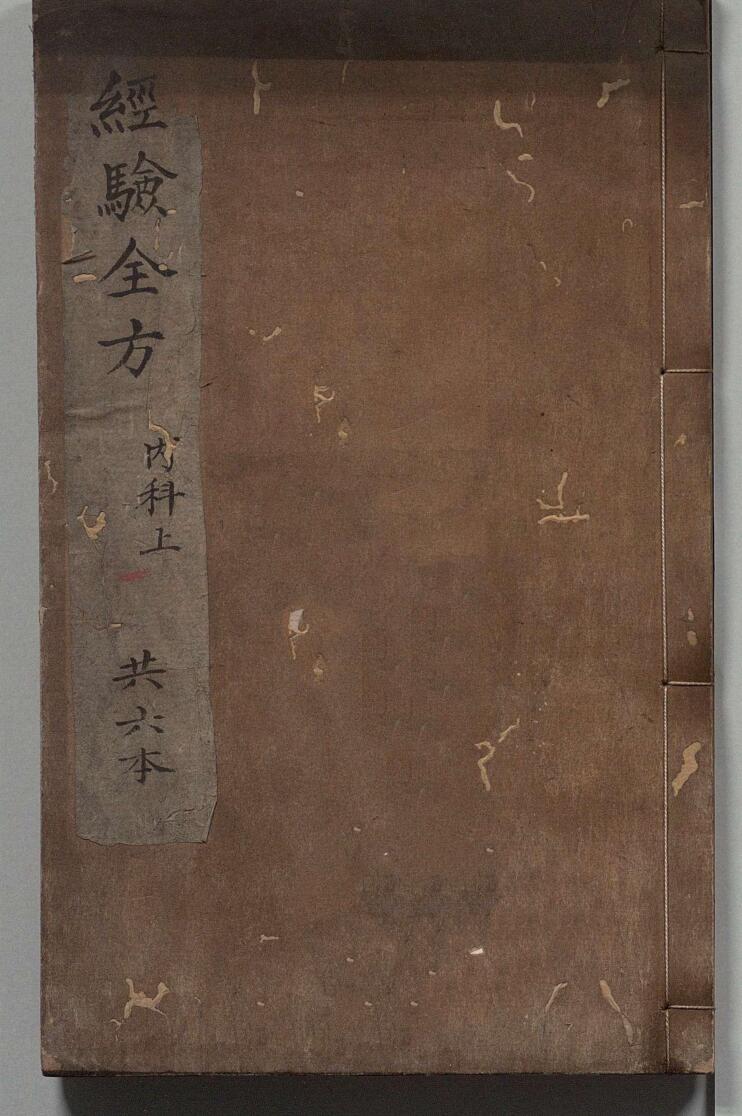 經驗全方
内科上
共六本